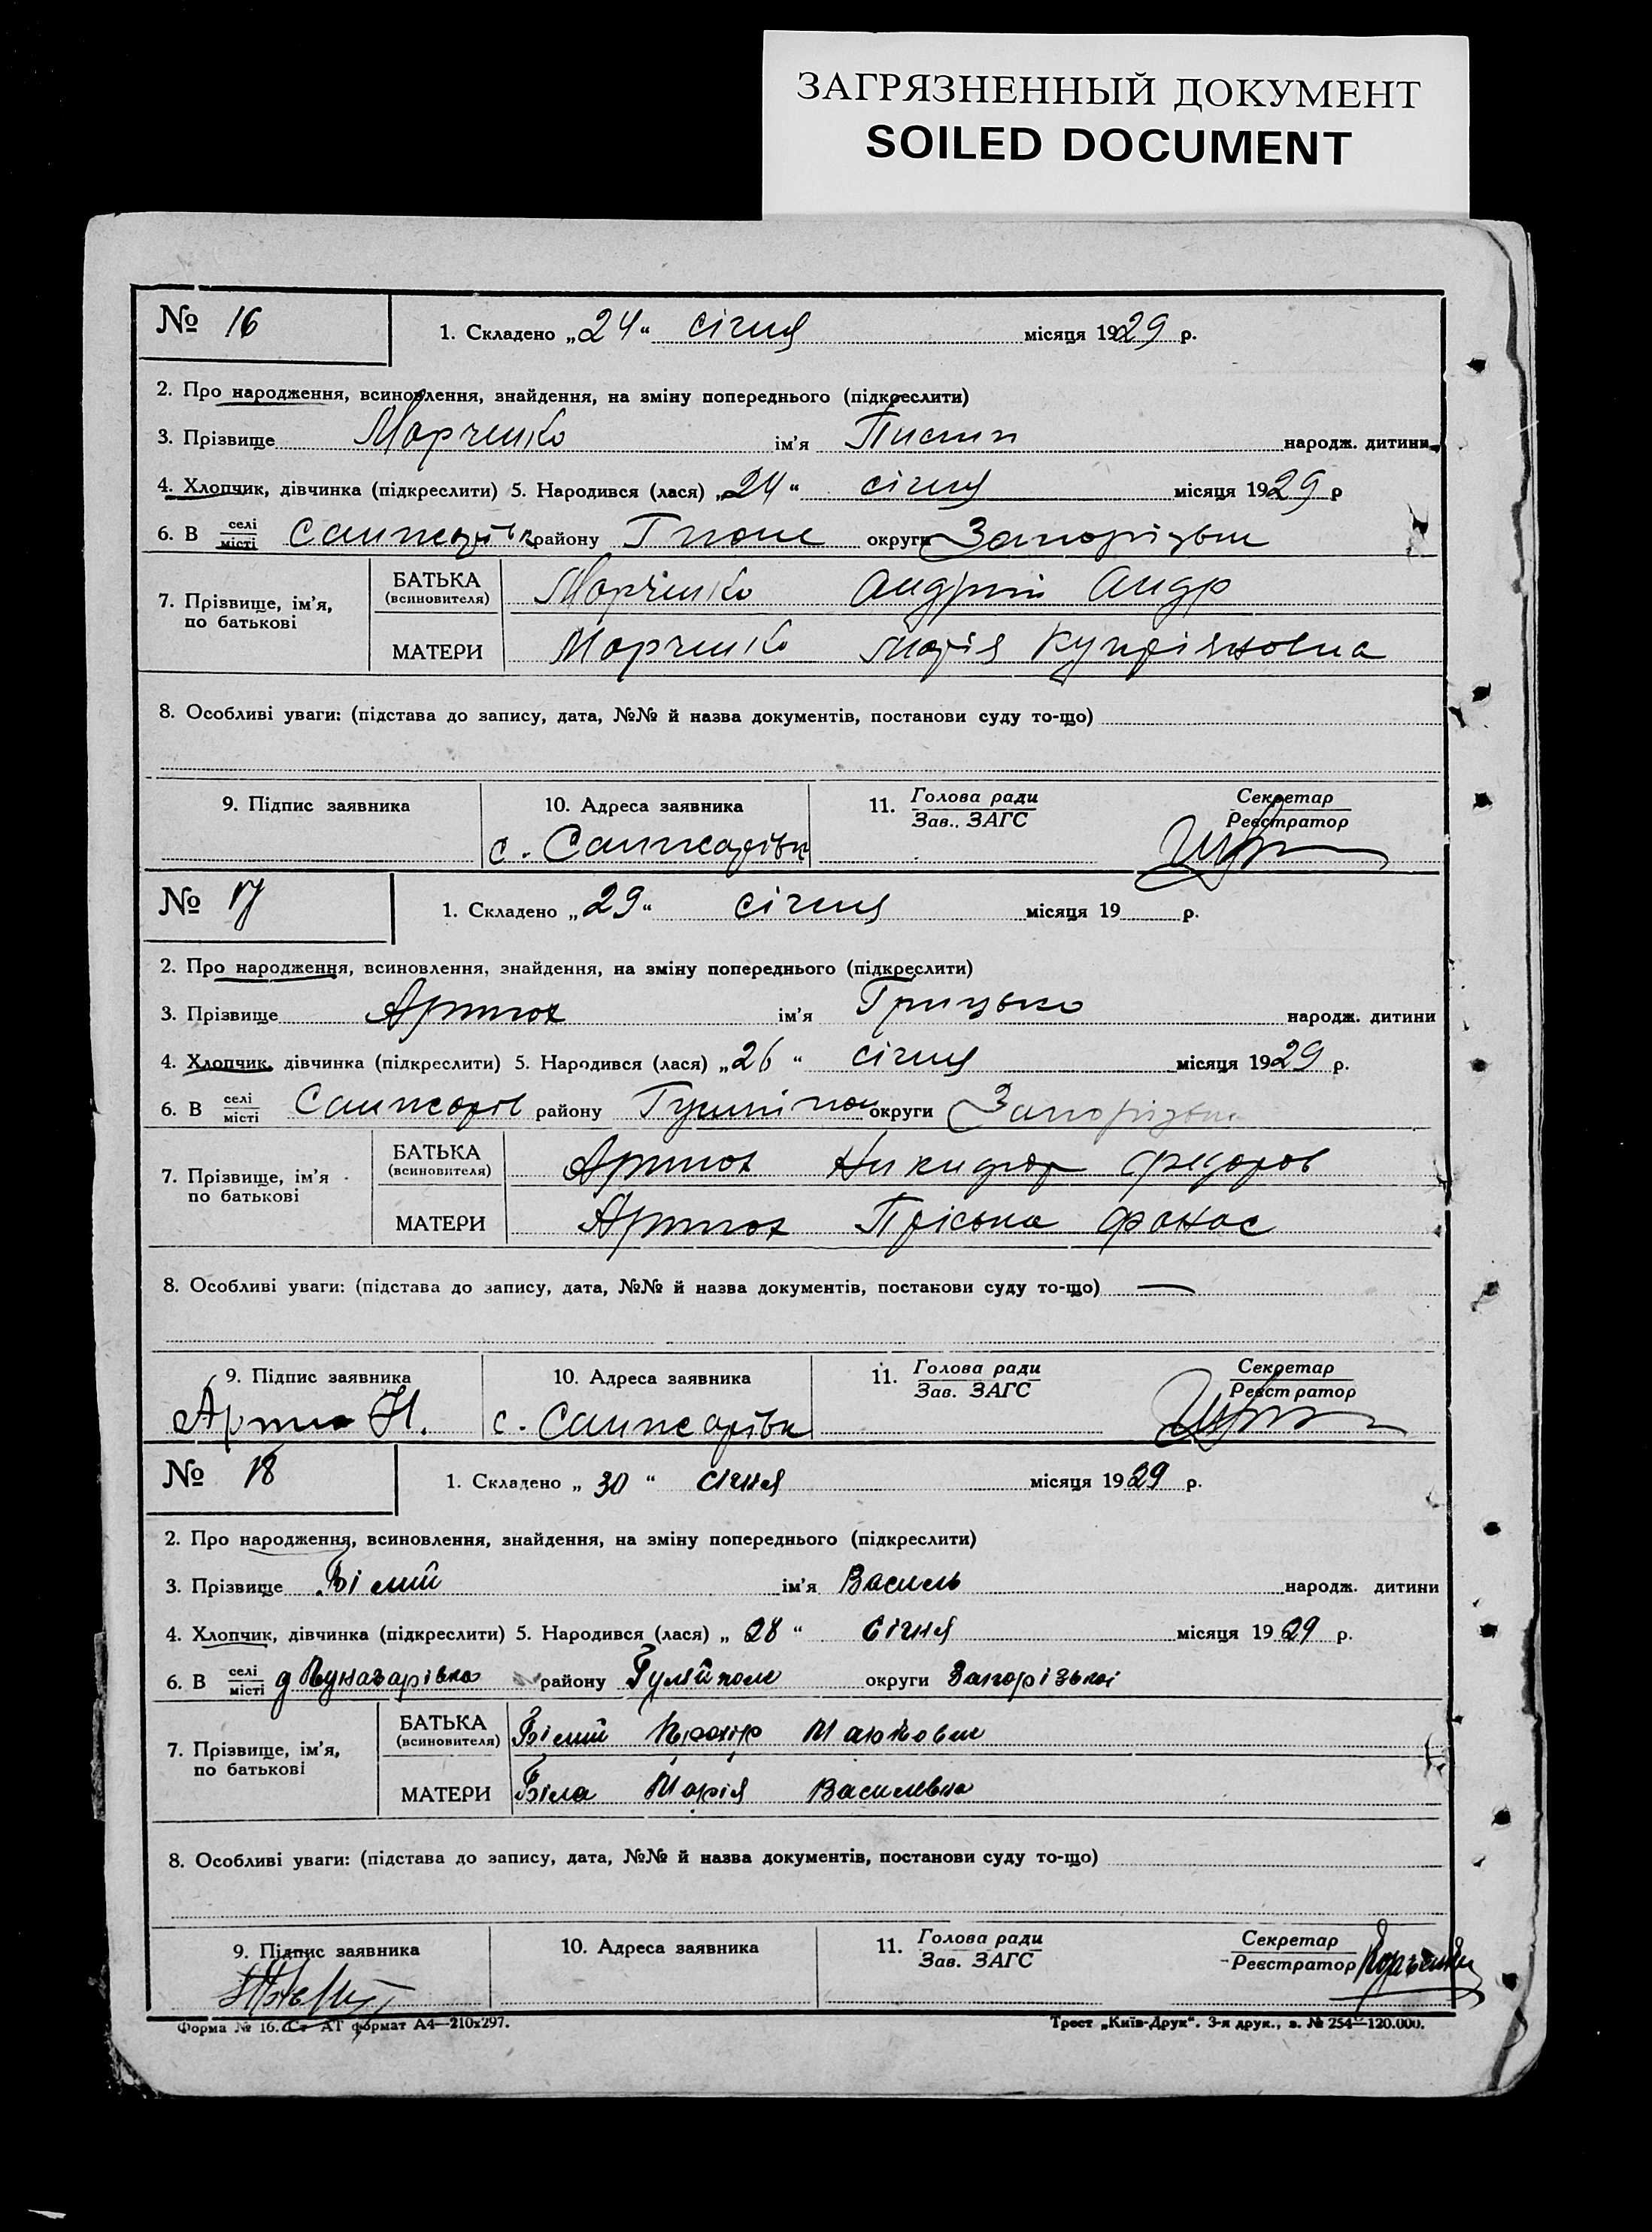 ЗАГРЯЗНЕННЫЙ ДОКУМЕНТ
SOILED DOCUMENT
№ 16
1. Складено „24“ січня місяця 1929 р.
2. Про народження, всиновлення, знайдення, на зміну попереднього (підкреслити)
3. Прізвище Марченко ім'я Пилип народж. дитини
4. Хлопчик, дівчинка (підкреслити) 5. Народився (лася) „24“ січня місяця 1929 р
6. В селі/місті Санжарівк району Гполе округи Запорізьк
7. Прізвище, ім'я, по батькові
БАТЬКА (всиновителя) Марченко Андрій Андр
МАТЕРИ Марченко Марія Купріяновна
8. Особливі уваги: (підстава до запису, дата, №№ й назва документів, постанови суду то-що)
9. Підпис заявника 10. Адреса заявника 11. Голова ради/Зав.. ЗАГС Секретар/Реєстратор
с. Санжарівк
№ 17
1. Складено „29“ січня місяця 19 р.
2. Про народження, всиновлення, знайдення, на зміну попереднього (підкреслити)
3. Прізвище Артюх ім'я Грицько народж. дитини
4. Хлопчик, дівчинка (підкреслити) 5. Народився (лася) „26“ січня місяця 1929 р.
6. В селі/місті Санжарів району округи Запорізьк
7. Прізвище, ім'я по батькові
БАТЬКА (всиновителя) Артюх Никифор Федоров
МАТЕРИ Артюх Пріська Фанас
8. Особливі уваги: (підстава до запису, дата, №№ й назва документів, постанови суду то-що) —
9. Підпис заявника 10. Адреса заявника 11. Голова ради/Зав. ЗАГС Секретар/Реєстратор
Артю Н. с. Санжарівк
№ 18
1. Складено „30“ січня місяця 1929 р.
2. Про народження, всиновлення, знайдення, на зміну попереднього (підкреслити)
3. Прізвище Білий ім'я Василь народж. дитини
4. Хлопчик, дівчинка (підкреслити) 5. Народився (лася) „28“ січня місяця 1929 р.
6. В селі/місті д Луначарівка району Гуляйполе округи Запорізькоі
7. Прізвище, ім'я, по батькові
БАТЬКА (всиновителя) Білий Прохір Маркович
МАТЕРИ Біла Марія Василевна
8. Особливі уваги: (підстава до запису, дата, №№ й назва документів, постанови суду то-що)
9. Підпис заявника 10. Адреса заявника 11. Голова ради/Зав. ЗАГС Секретар/Реєстратор
Форма № 16. Ст АТ формат А4—210х297. Трест „Київ-Друк“. 3-я друк., з. № 254—120.000.